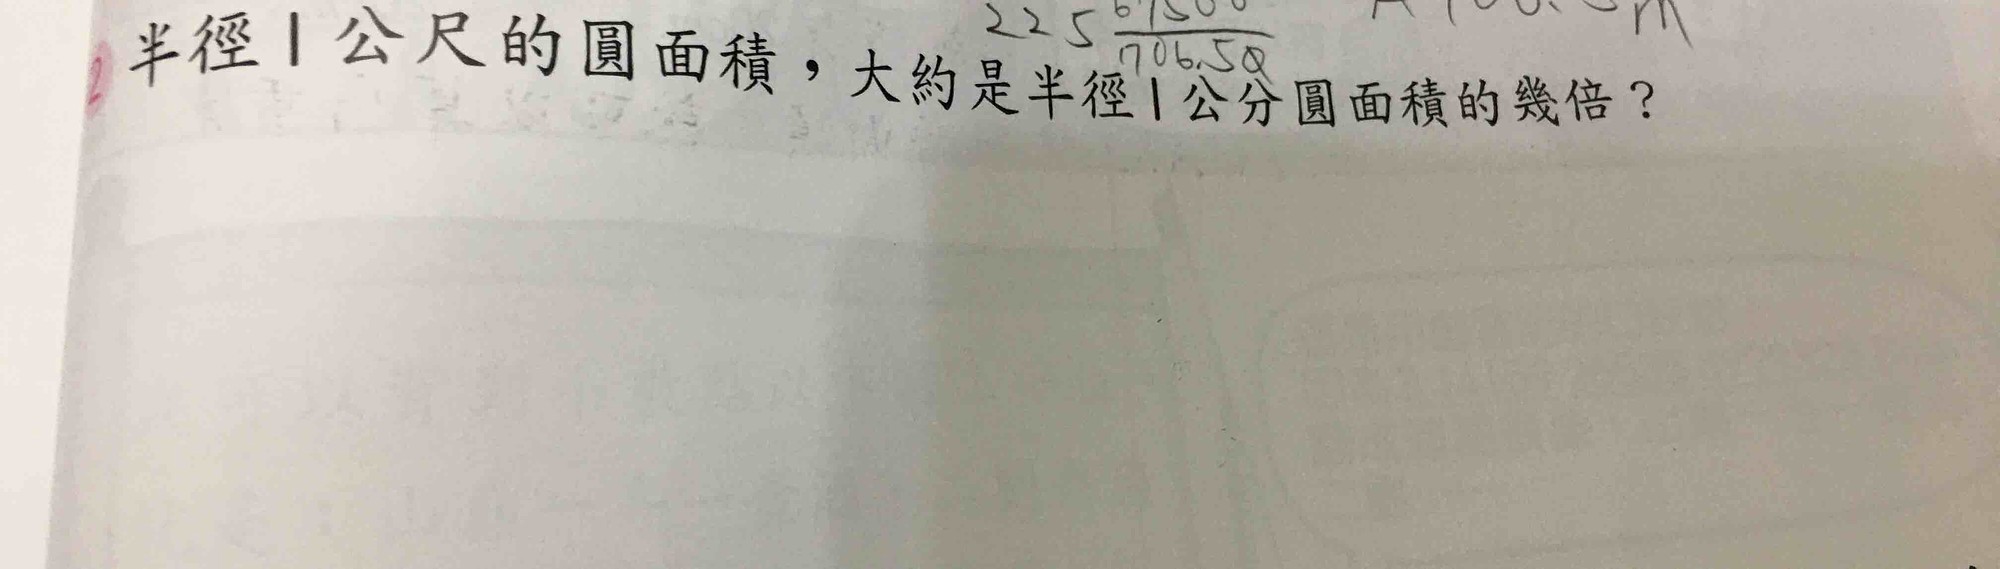 225
706.50
2 半徑1公尺的圓面積，大約是半徑1公分圓面積的幾倍？